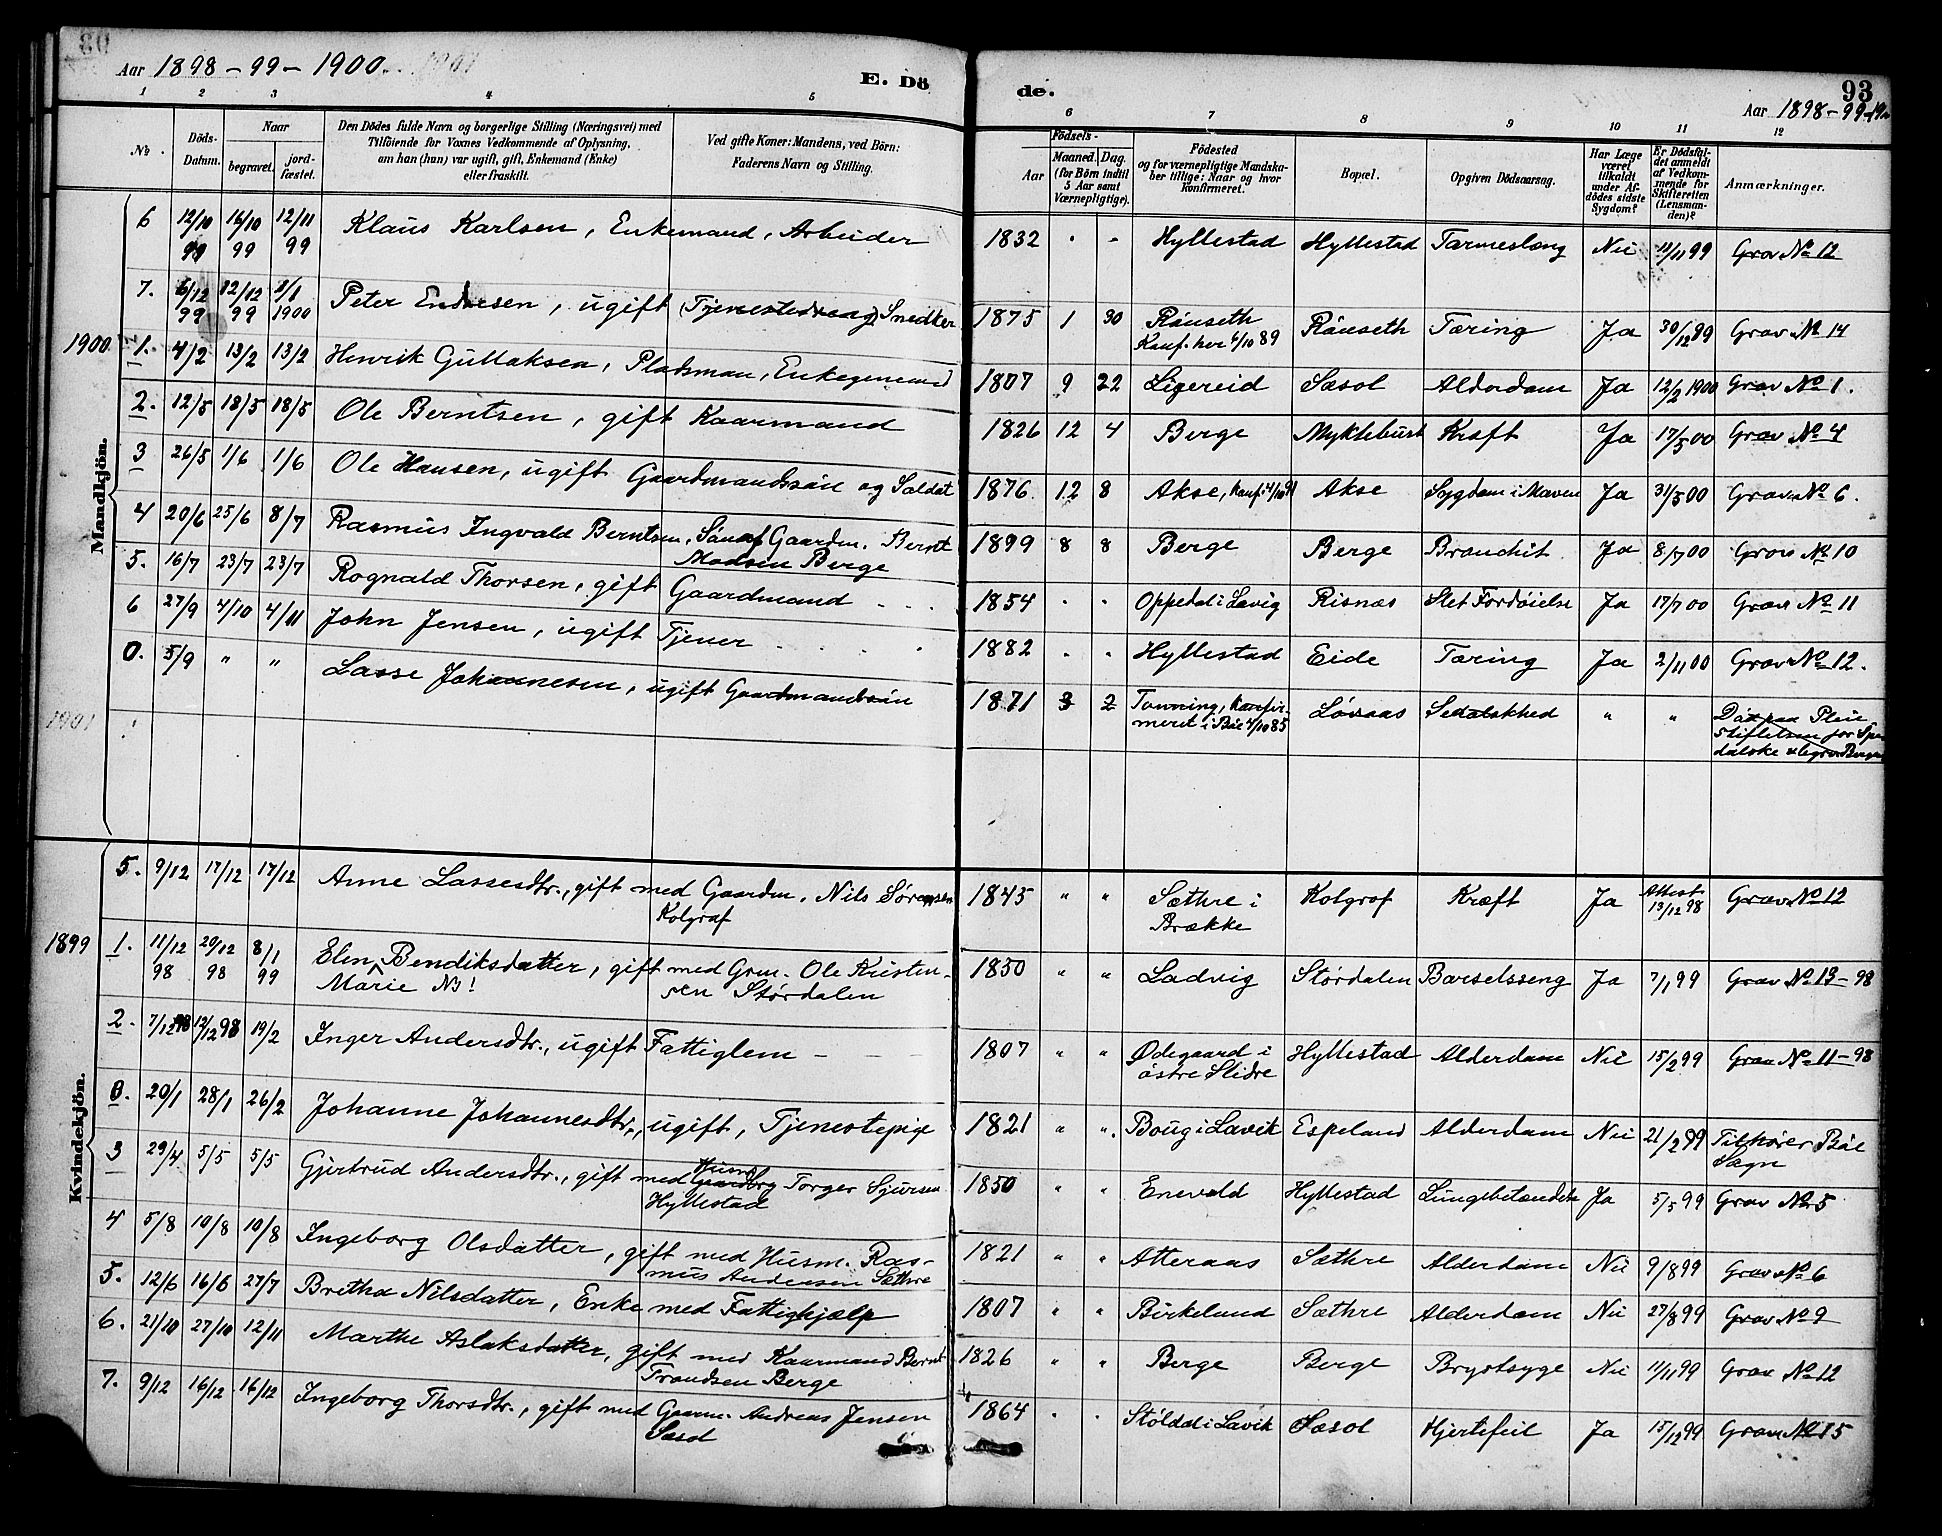 Aar 1898-99-1900. 1901
E. Dö
de.
93
Aar 1898-99-19
1 2 3 4 5 6 7 8 9 10 11 12
No.
Döds-Datum.
Naar
begravet.
jord-fæstet.
Den Dödes fulde Navn og borgerlige Stilling (Næringsvei) med
Tilföiende for Voxnes Vedkommende af Oplysning,
om han (hun) var ugift, gift, Enkemand (Enke)
eller fraskilt.
Ved gifte Koner: Mandens, ved Börn:
Faderens Navn og Stilling.
Födsels-
Aar
Maaned. Dag.
(for Börn indtil
5 Aar samt
Værnepligtige).
Födested
og for værnepligtige Mandska-
ber tillige: Naar og hvor
Konfirmeret.
Bopæl.
Opgiven Dödsaarsag.
Har Læge
været
tilkaldt
under Af-
dödes sidste
Sygdom?
Er Dödsfal-
det anmeldt
af Vedkom-
mende for
Skifteretten
(Lensman-
den)?
Anmærkninger.
Mandkjön.
6 12/10 99 16/10 99 12/11 99 Klaus Karlsen, Enkemand, Arbeider 1832 " " Hyllestad Hyllestad Tarmeslæng Nei 11/11 99 Grav No 12
7. 6/12 99 12/12 99 2/1 1900 Peter Endresen, ugift (Tjenestedreng) Snedker 1875 1 30 Rönseth Konf. her 4/10 89 Rönseth Tæring Ja 30/12 99 Grav No 14
1900 1. 4/2 13/2 13/2 Henrik Gullaksen, Pladsman, Enkegemand 1807 9 22 Ligereid Sæsol Alderdom Ja 12/2 1900 Grav No 1.
2. 12/5 18/5 18/5 Ole Berntsen, gift Kaarmand 1826 12 4 Berge Myklebust Kræft Ja 17/5 00 Grav No 4
3 26/5 1/6 1/6 Ole Hansen, ugift Gaardmandssön og Soldat 1876 12 8 Akse, Konf. 4/10 91 Akse Sygdom i Maven Ja 31/5 00 Grav No 6.
4 20/6 25/6 8/7 Rasmus Ingvald Berntsen. Sön af Gaardm. Bernt
Madsen Berge 1899 8 8 Berge Berge Bronchit Ja 8/7 00 Grav No 10
5. 16/7 23/7 23/7 Rognald Thorsen, gift Gaardmand 1854 " " Oppedal i Lavig Risnæs Slet Fordöielse Ja 17/7 00 Grav No 11
6 27/9 4/10 4/11 John Jensen, ugift Tjener 1882 " " Hyllestad Eide Tæring Ja 2/11 00 Grav No 12.
0. 5/9 " " Lasse Johannesen, ugift Gaardmandssön 1871 3 2 Tonning, Konfir-
meret i Böe 4/10 85 Lövaas Sedalskhed " " Död paa Pleie-
stiftelsen for Spe-
dalske & begr. Bergen
1901
Kvindekjön.
5. 9/12 17/12 17/12 Anne Lassesdtr., gift med Gaardm. Nils Sørensen
Kolgraf 1845 " " Sæthre i
Brække Kolgrof Kræft Ja Attest 13/12 98 Grav No 12
1899 1. 11/12 98 20/12 98 8/1 99 Elen Bendiksdatter, gift med Grm. Ole Kristen-
Marie NB! sen Stördalen 1850 " " Ladvig Stördalen Barselsseng Ja 7/1 99 Grav No 13-98
2. 7/12 98 12/12 98 19/2 Inger Andersdtr., ugift Fattiglem 1807 " " Ødegaard i
östre Slidre Hyllestad Alderdom Nei 15/2 99 Grav No 11-98
0. 20/1 28/1 26/2 Johanne Johannesdtr., ugift, Tjenestepige 1821 " " Boug i Lavik Espeland Alderdom Nei 21/2 99 Tilhörer Böe
Sogn
3 29/4 5/5 5/5 Gjertrud Andersdtr., gift med Husm. Torger Sjursen
Hyllestad 1850 " " Enevold Hyllestad Lungebetændelse Ja 5/5 99 Grav No 5
4 5/8 10/8 10/8 Ingeborg Olsdatter, gift med Husm. Ras-
mus Andersen Sæthre 1821 " " Atteraas Sæthre Alderdom Nei 9/8 99 Grav No 6
5. 12/6 16/6 27/7 Britha Nilsdatter, Enke med Fattighjælp 1807 " " Birkeland Sæthre Alderdom Nei 27/8 99 Grav No 9
6. 21/10 27/10 12/11 Marthe Aslaksdatter, gift med Kaarmand Bernt
Frandsen Berge 1826 " " Berge Berge Brystsyge Nei 11/11 99 Grav No 12
7. 9/12 16/12 16/12 Ingeborg Thorsdtr., gift med Gaarm. Andreas Jensen
Sæsol 1864 " " Stöldal i Lavik Sæsol Hjertefeil Ja 15/12 99 Grav No 15